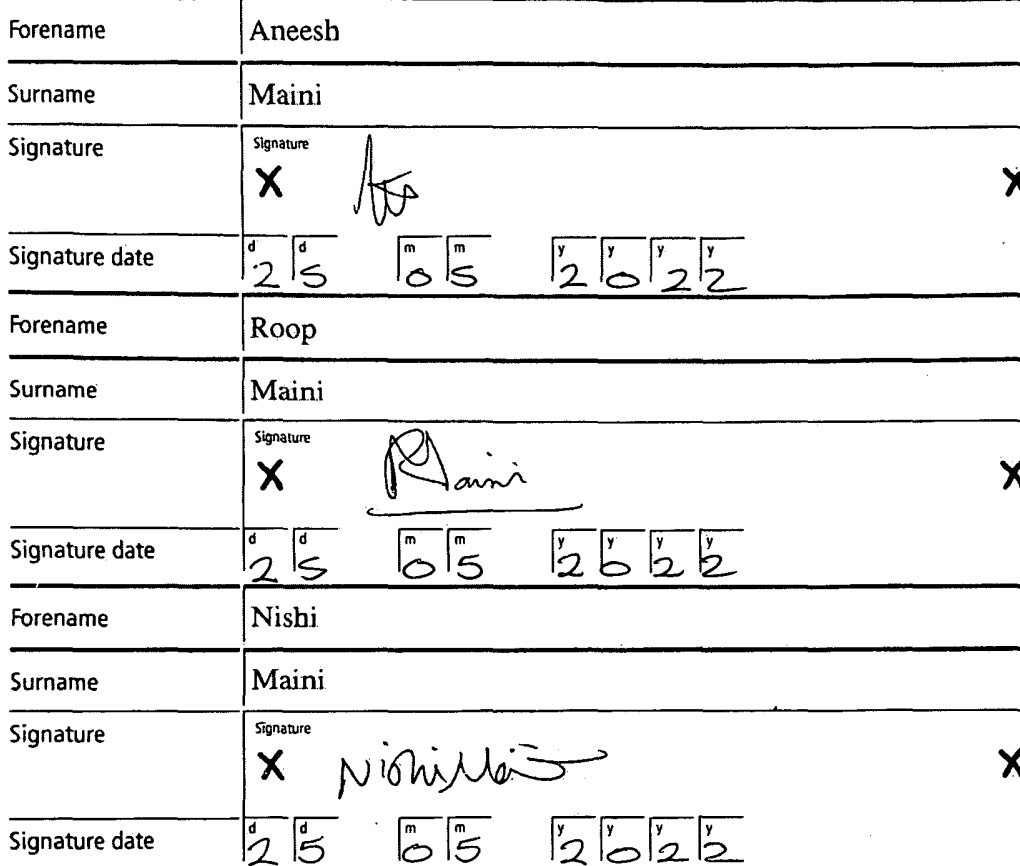 Forename Aneesh
Surname Maini
Signature Signature
X X
Signature date d d m m y y y y
2 5 0 5 2 0 2 2
Forename Roop
Surname Maini
Signature Signature
X RMaini X
Signature date d d m m y y y y
2 5 0 5 2 0 2 2
Forename Nishi
Surname Maini
Signature Signature
X Nishi Maini X
Signature date d d m m y y y y
2 5 0 5 2 0 2 2